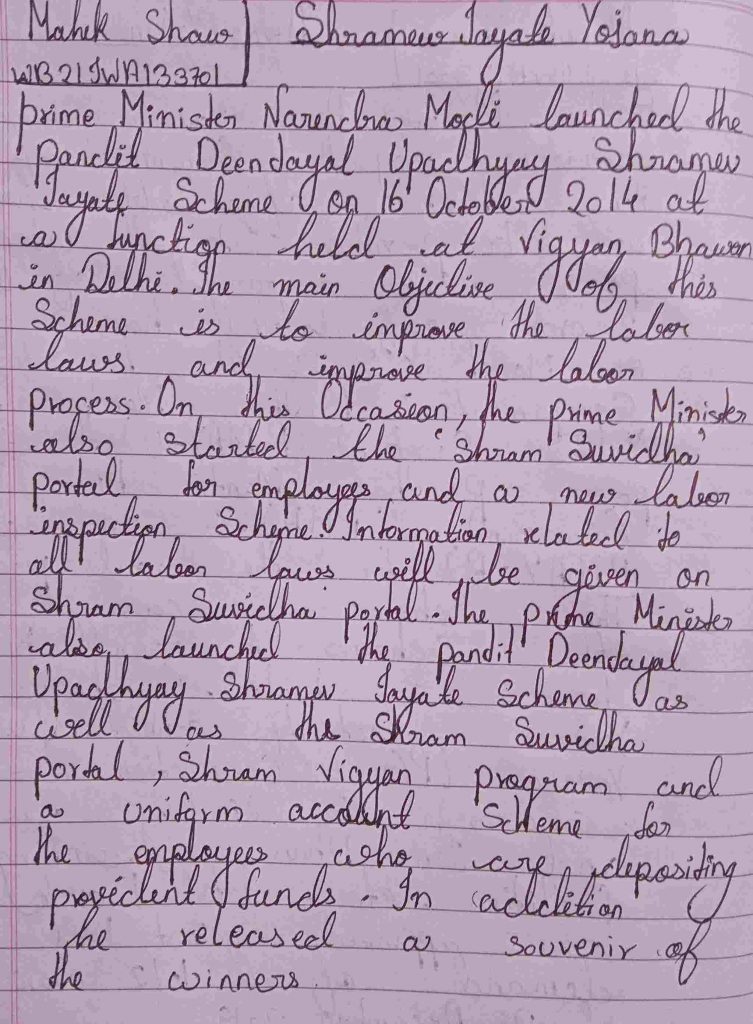 Mahek Shaw Shramew Jayate Yojana
WB21JWA133701
prime Minister Narendra Modi launched the
Pandit Deendayal Upadhyay Shramev
Jayate Scheme on 16 October 2014 at
a function held at Vigyan Bhawan
in Delhi. The main Objective of this
Scheme is to improve the labor
laws and improve the labor
process. On this Occasion, the prime Minister
also started the 'Shram Suvidha'
portal for employees and a new labor
inspection Scheme. Information related to
all labor laws will be given on
Shram Suvidha portal. The prime Minister
also launched the pandit Deendayal
Upadhyay Shramev Jayate Scheme as
well as the Shram Suvidha
portal, Shram Vigyan program and
a uniform account Scheme for
the employees who are depositing
provident funds. In addition
he released a souvenir of
the winners.